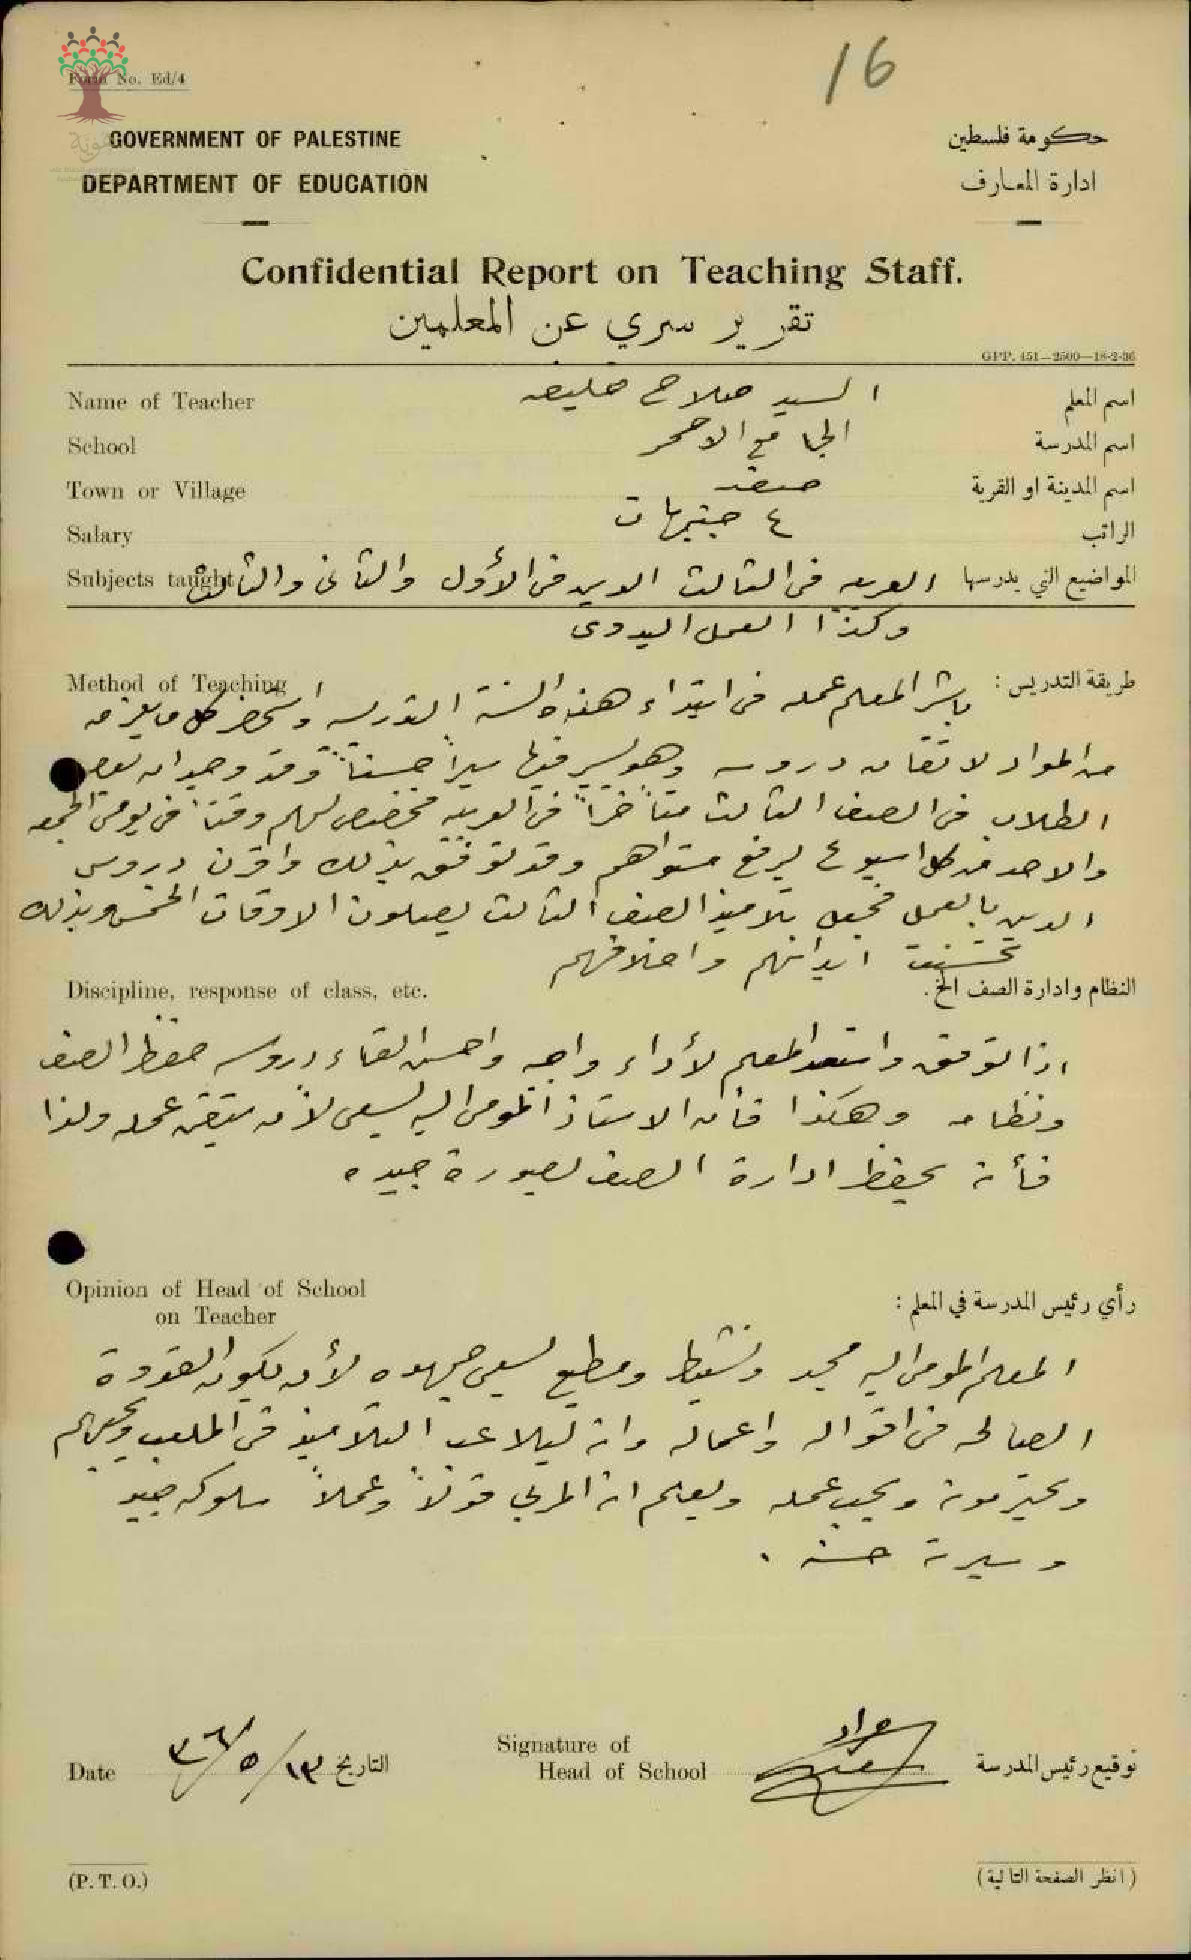 16
Form No. Ed/4
هوية
GOVERNMENT OF PALESTINE
حكومة فلسطين
DEPARTMENT OF EDUCATION
ادارة المعارف
Confidential Report on Teaching Staff.
تقرير سري عن المعلمين
GPP. 451—2500—18-2-36
Name of Teacher السيد صلاح خليفه اسم المعلم
School الجامع الاحمر اسم المدرسة
Town or Village صفد اسم المدينة او القرية
Salary ٤ جنيهات الراتب
Subjects taught العربيه في الثالث الدين في الأول والثاني والثالث المواضيع التي يدرسها
وكذا العمل اليدوي
Method of Teaching طريقة التدريس :
باشر المعلم عمله في ابتداء هذه السنة التدريسيه واستحضر كل ما يلزمه
من المواد لاتقان دروسه وهو يسير فيها سيراً حسناً وقد وجد ان بعض
الطلاب في الصف الثالث متأخراً في العربيه فخصص لهم وقتاً في يومي الجمعه
والاحد من كل اسبوع ليرفع مستواهم وقد توفق بذلك واقرن دروس
الدين بالعمل فجعل تلاميذ الصف الثالث يصلون الاوقات الخمس وبذلك
تحسنت ابدانهم واخلاقهم
Discipline, response of class, etc. النظام وادارة الصف الخ.
اذا توفق واستعد المعلم لأداء واجبه واحسن القاء دروسه حفظ الصف
ونظامه وهكذا فأن الاستاذ المومى اليه يسعى لأن يتقن عمله ولذا
فأنه يحفظ ادارة الصف بصورة جيده
Opinion of Head of School
on Teacher
رأي رئيس المدرسة في المعلم :
المعلم المومى اليه مجد ونشيط ومطيع يسعى جهده لأن يكون القدوة
الصالحه في اقواله واعماله وانه ليلاعب التلاميذ في الملعب ويحبهم
ويحترمونه ويحب عمله ويعلم انه المربي قولاً وعملاً سلوكه جيد
وسيرته حسنه .
Date ٣٦/٥/١٣ التاريخ
Signature of
Head of School توقيع رئيس المدرسة
(P. T. O.)
(انظر الصفحة التالية)